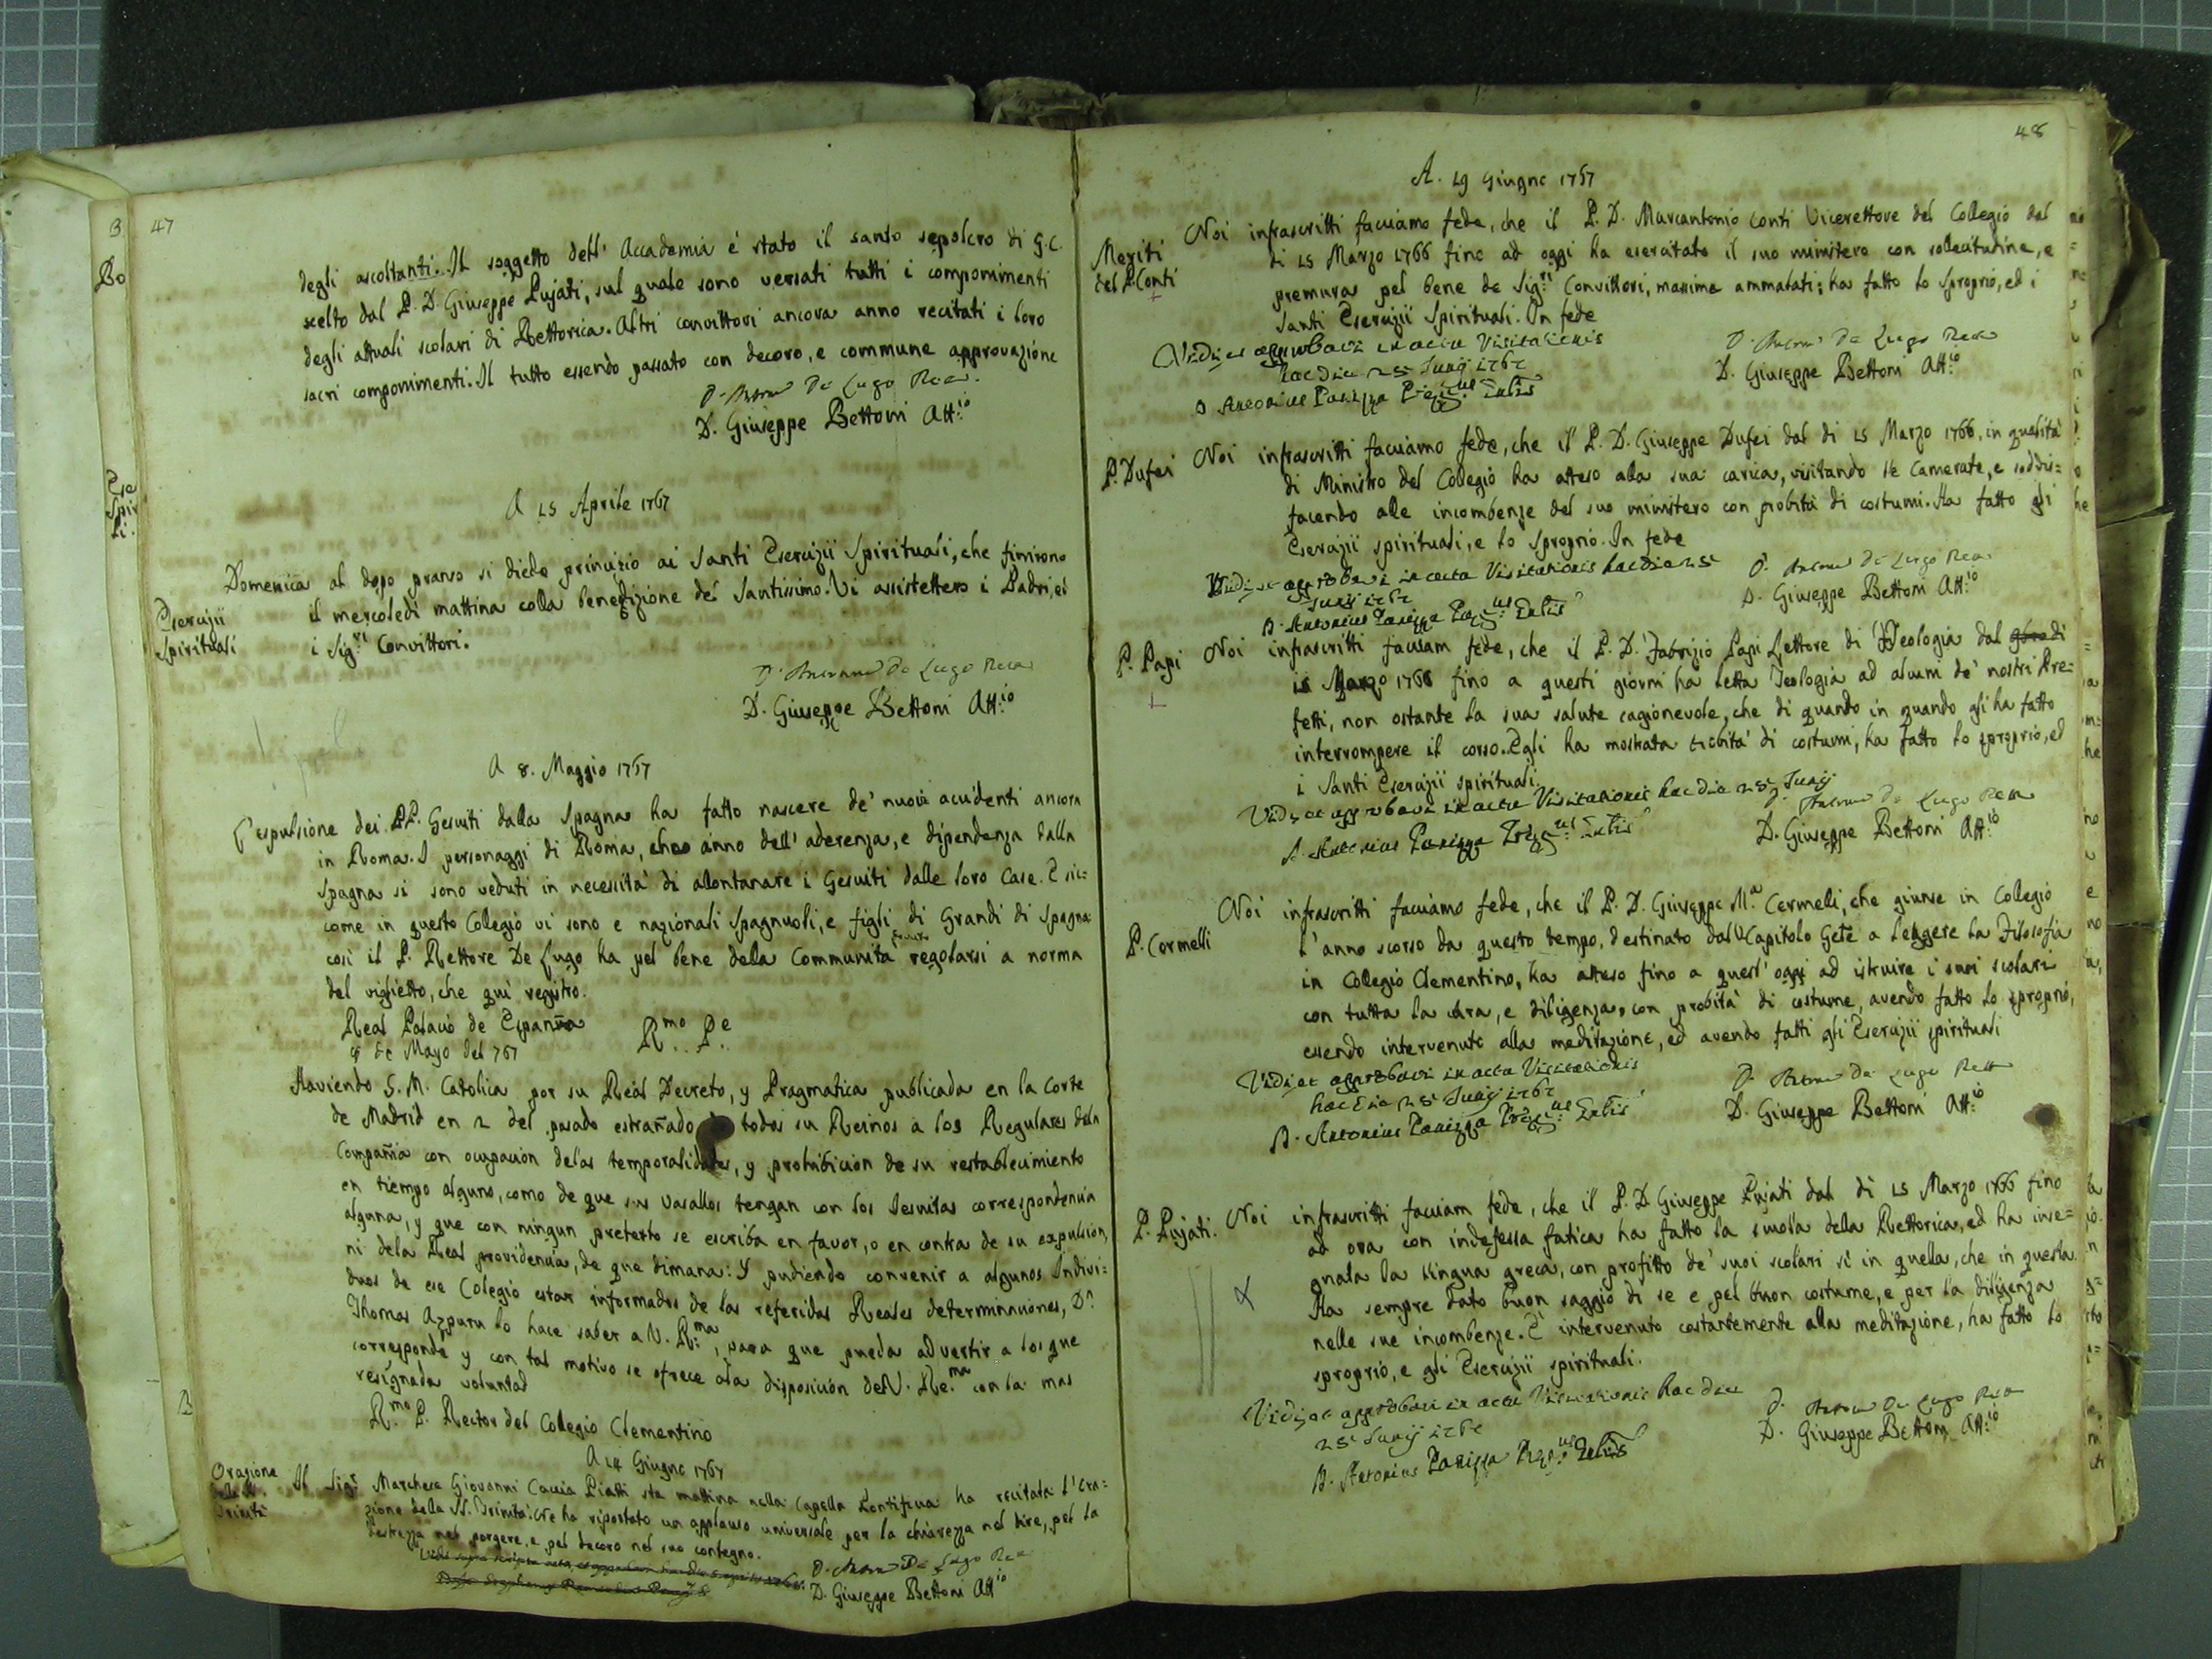 47
degli ascoltanti. Il soggetto dell' Accademia è stato il santo sepolcro di G.C.
scelto dal P. D. Giuseppe Pujati, sul quale sono versati tutti i componimenti
degli attuali scolari di Rettorica. Altri convittori ancora anno recitati i loro
sacri componimenti. Il tutto essendo passato con decoro, e commune approvazione
D. Antonio De Lugo Rett.
D. Giuseppe Bettoni Att.io
A 15 Aprile 1767
Esercizii
Spirituali
Domenica al dopo pranso si diede principio ai Santi Esercizii Spirituali, che finirono
il mercoledì mattina colla benedizione del Santissimo. Vi assistettero i Padri, ed
i Sig.ri Convittori.
D. Antonio De Lugo Rett.
D. Giuseppe Bettoni Att.io
A 8. Maggio 1767
L'espulsione dei PP. Gesuiti dalla Spagna ha fatto nascere de' nuovi accidenti ancora
in Roma. I personaggi di Roma, che anno dell' aderenza, e dipendenza dalla
Spagna si sono veduti in necessità di alontanare i Gesuiti dalle loro Case. E sic=
come in questo Collegio vi sono e nazionali Spagnuoli, e figli di Grandi di Spagna
così il P. Rettore De Lugo ha pel bene della Communità dovuto regolarsi a norma
del viglietto, che quì registro.
Real Palacio de España
de Mayo del 767
R.mo P.e
Haviendo S. M. Catolica por su Real Decreto, y Pragmatica publicada en la Corte
de Madrid en 2 del pasado estrañado todos su Reinos a los Regulares dela
Compañia con ocupacion delas temporalidades, y prohibicion de su restablecimiento
en tiempo alguno, como de que sus vasallos tengan con los Jesuitas correspondencia
alguna, y que con ningun pretexto se escriba en favor, o en contra de su expulsion,
ni dela Real providencia, de que dimana: Y pudiendo convenir a algunos Indivi=
duos de ese Colegio estar informados de las referidas Reales determinaciones, D.n
Thomas Azpuru lo hace saber a V. R.ma, para que pueda advertir a los que
corresponde y con tal motivo se ofrece ala disposicion de V. Re.ma con la mas
resignada voluntad
R.mo P. Rector del Collegio Clementino
A 14 Giugno 1767
Orazione
Trinità
Il Sig.r Marchese Giovanni Caccia Piatti sta mattina nella Capella Pontificia ha recitata l'ora=
zione della SS. Trinità. Ne ha riportato un applauso universale per la chiarezza nel dire, pel la
destrezza nel porgere, e pel decoro nel suo contegno.
D. Antonio De Lugo Rett.
D. Giuseppe Bettoni Att.io
48
A. 19 Giugno 1767
Meriti
del P. Conti
Noi infrascritti facciamo fede, che il P. D. Marcantonio Conti Vicerettore del Collegio dal
di 15 Marzo 1766 fino ad oggi ha esercitato il suo ministero con sollecitudine, e
premura pel bene de Sig.ri Convittori, massime ammalati; ha fatto lo sproprio, ed i
Santi Esercizii Spirituali. In fede
Vidi, et approbavi in actu Visitationis
hac die 25 Junij 1767
D. Antonius Panizza Præp.us Gen.lis
D. Antonio De Lugo Rett.
D. Giuseppe Bettoni Att.io
P. Dufei
Noi infrascritti facciamo fede, che il P. D. Giuseppe Dufei dal di 15 Marzo 1766, in qualità
di Ministro del Collegio ha atteso alla sua carica, visitando le Camerate, e soddis=
facendo alle incombenze del suo ministero con probità di costumi. Ha fatto gli
Esercizii spirituali, e lo sproprio. In fede
Vidi, et approbavi in actu Visitationis hac die 25
Junij 1767
D. Antonius Panizza Præp.us Gen.lis
D. Antonio De Lugo Rett.
D. Giuseppe Bettoni Att.io
P. Papi
Noi infrascritti facciam fede, che il P. D. Fabrizio Papi Lettore di Teologia dal di
15 Marzo 1766 fino a questi giorni ha letta Teologia ad alcuni de' nostri Pre=
fetti, non ostante la sua salute cagionevole, che di quando in quando gli ha fatto
interrompere il corso. Egli ha mostrata probità di costumi, ha fatto lo sproprio, ed
i Santi Esercizii spirituali.
Vidi, et approbavi in actu Visitationis hac die 25 Junij
D. Antonius Panizza Præp.us Gen.lis
D. Antonio De Lugo Rett.
D. Giuseppe Bettoni Att.io
P. Cermelli
Noi infrascritti facciamo fede, che il P. D. Giuseppe M.a Cermeli, che giunse in Collegio
l'anno scorso da questo tempo, destinato dal Capitolo Gele a leggere la Filosofia
in Collegio Clementino, ha atteso fino a quest' oggi ad istruire i suoi scolari
con tutta la cura, e diligenza, con probità di costume, avendo fatto lo sproprio,
essendo intervenuto alla meditazione, ed avendo fatti gli Esercizii spirituali
Vidi, et approbavi in actu Visitationis
hac die 25 Junij 1767
D. Antonius Panizza Præp.us Gen.lis
D. Antonio De Lugo Rett.
D. Giuseppe Bettoni Att.io
P. Pujati.
Noi infrascritti facciam fede, che il P. D. Giuseppe Pujati dal di 15 Marzo 1766 fino
ad ora con indefessa fatica ha fatto la scuola della Rettorica, ed ha inse=
gnata la lingua greca, con profitto de' suoi scolari sì in quella, che in questa.
Ha sempre dato buon saggio di se e pel buon costume, e per la diligenza
nelle sue incombenze. È intervenuto costantemente alla meditazione, ha fatto lo
sproprio, e gli Esercizii spirituali.
Vidi, et approbavi in actu Visitationis hac die
25 Junij 1767
D. Antonius Panizza Præp.us Gen.lis
D. Antonio De Lugo Rett.
D. Giuseppe Bettoni Att.io